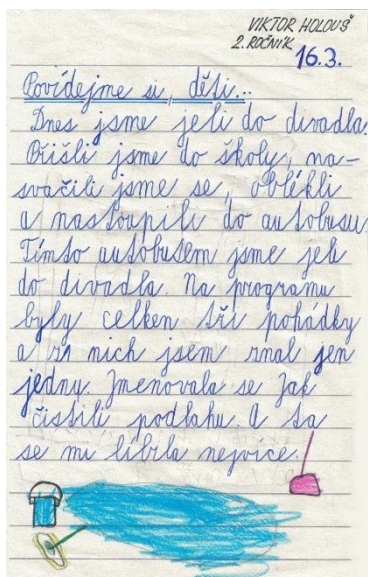 VIKTOR HOLOUŠ
2. ROČNÍK
16.3.
Povídejme si, děti...
Dnes jsme jeli do divadla.
Přišli jsme do školy, na-
svačili jsme se, oblékli
a nastoupili do autobusu.
Tímto autobusem jsme jeli
do divadla. Na programu
byly celkem tři pohádky
a z nich jsem znal jen
jednu. Jmenovala se Jak
čistili podlahu. A ta
se mi líbila nejvíce.